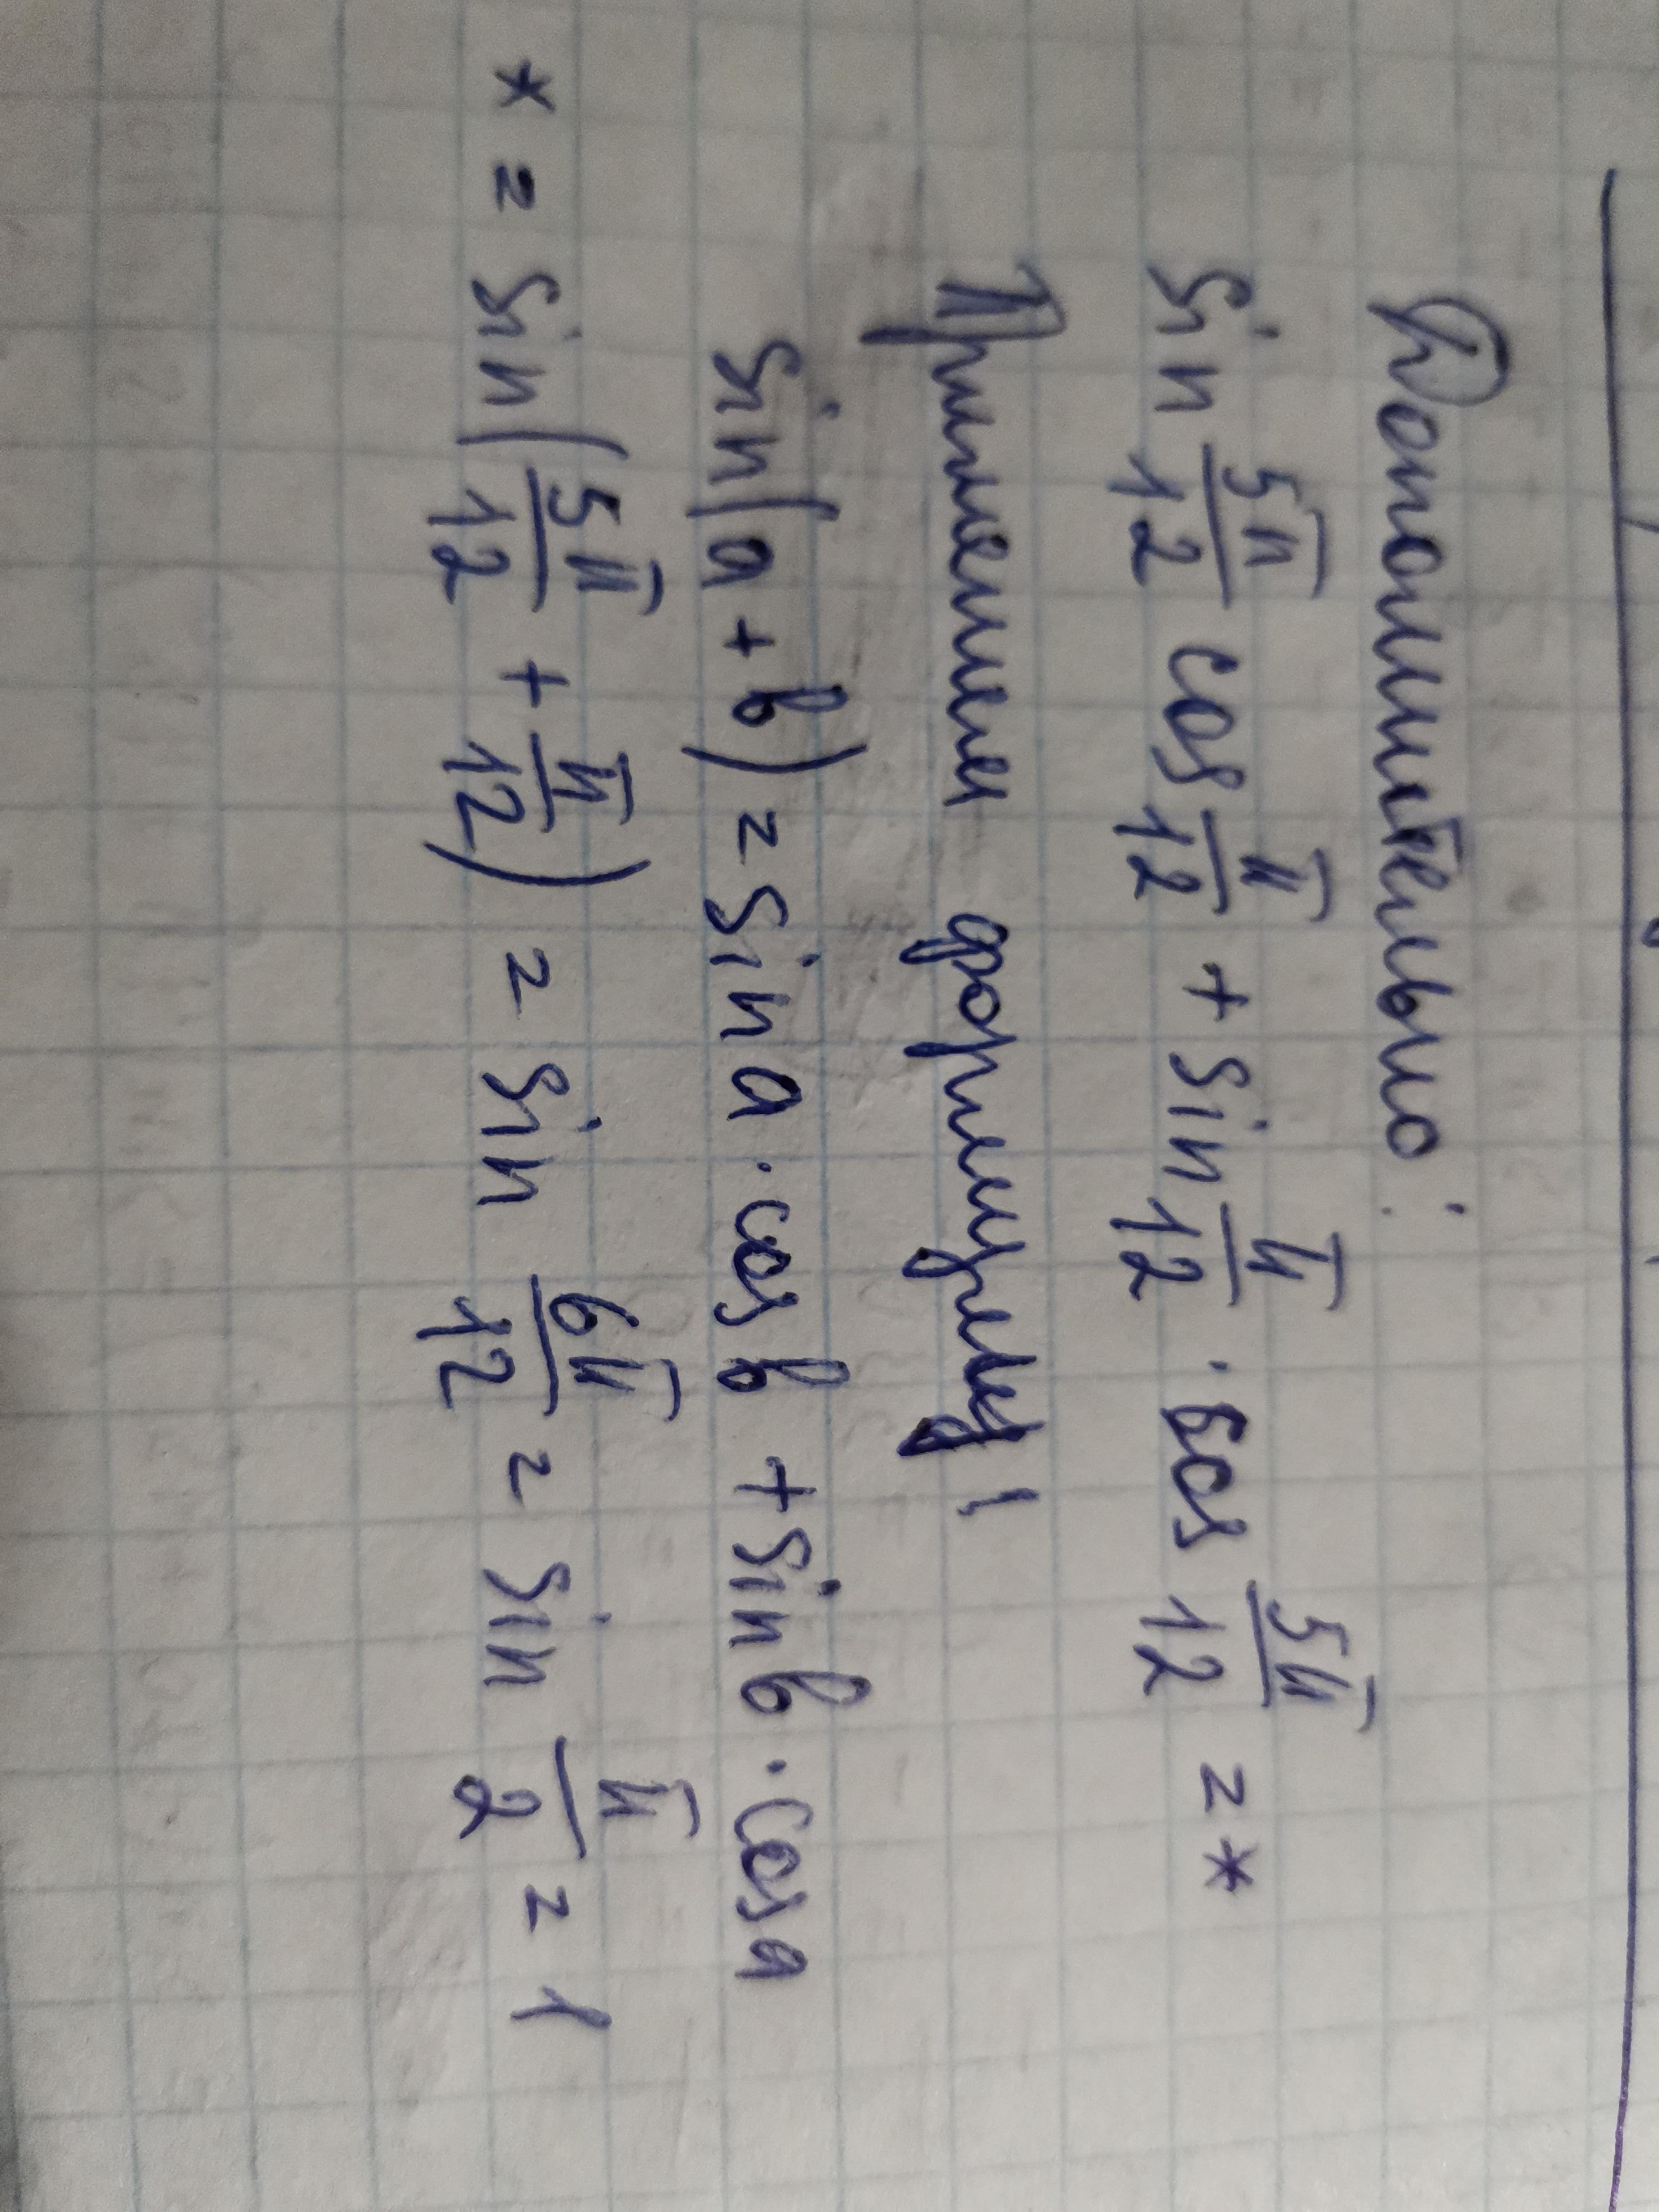 Дополнительно:
sin 5π/12 cos π/12 + sin π/12 · cos 5π/12 = *
Применим формулу:
sin(a + b) = sin a · cos b + sin b · cos a
* = sin(5π/12 + π/12) = sin 6π/12 = sin π/2 = 1